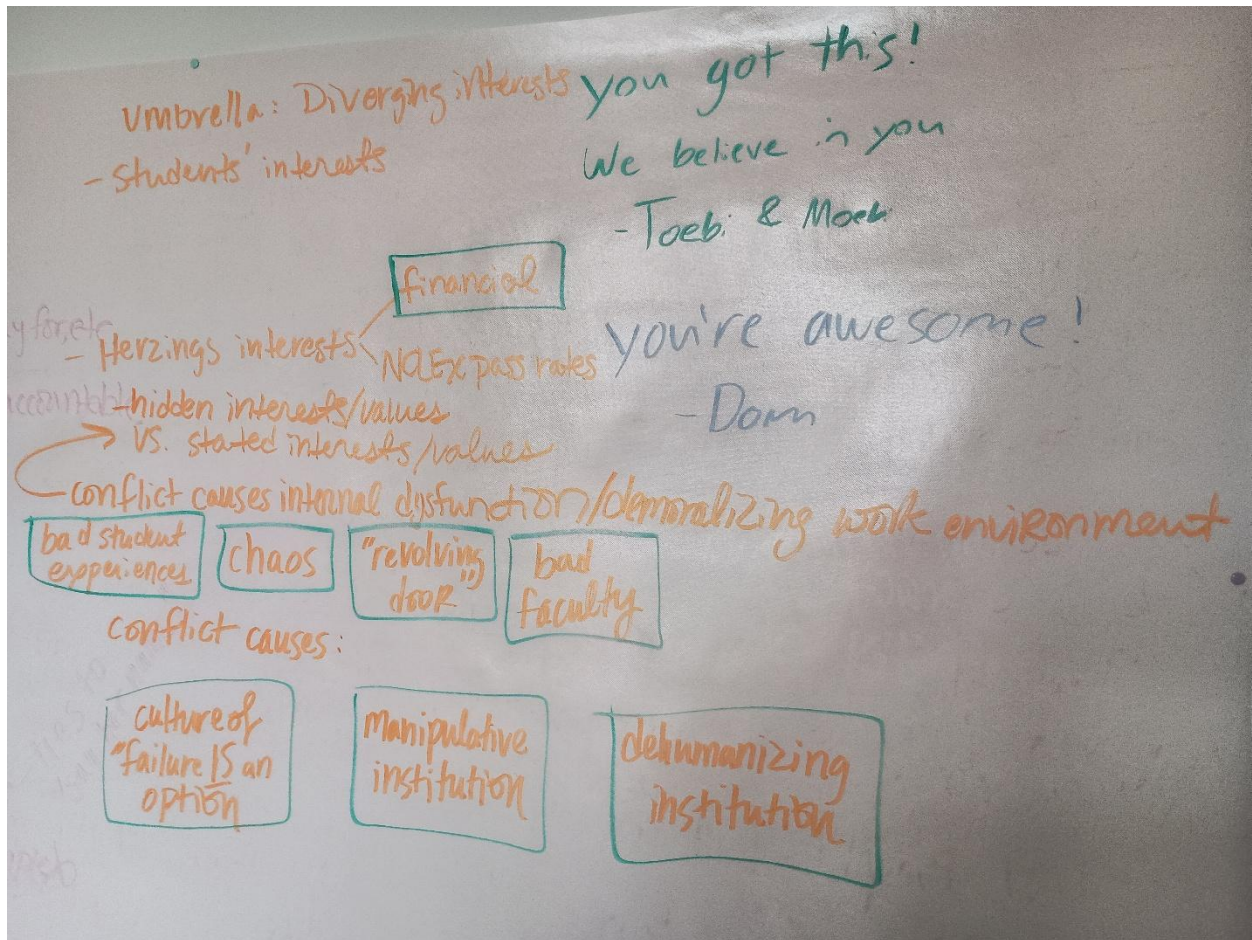 Umbrella: Diverging interests
- Students' interests
you got this!
We believe in you
- Toebi & Moebi
financial
- Herzings interests
NCLEx pass rates
you're awesome!
- Dom
y for, etc
- hidden interests/values
vs. stated interests/values
- conflict causes internal dysfunction/demoralizing work environment
bad student
experiences
chaos
"revolving
door"
bad
faculty
conflict causes:
culture of
"failure IS an
option
manipulative
institution
dehumanizing
institution